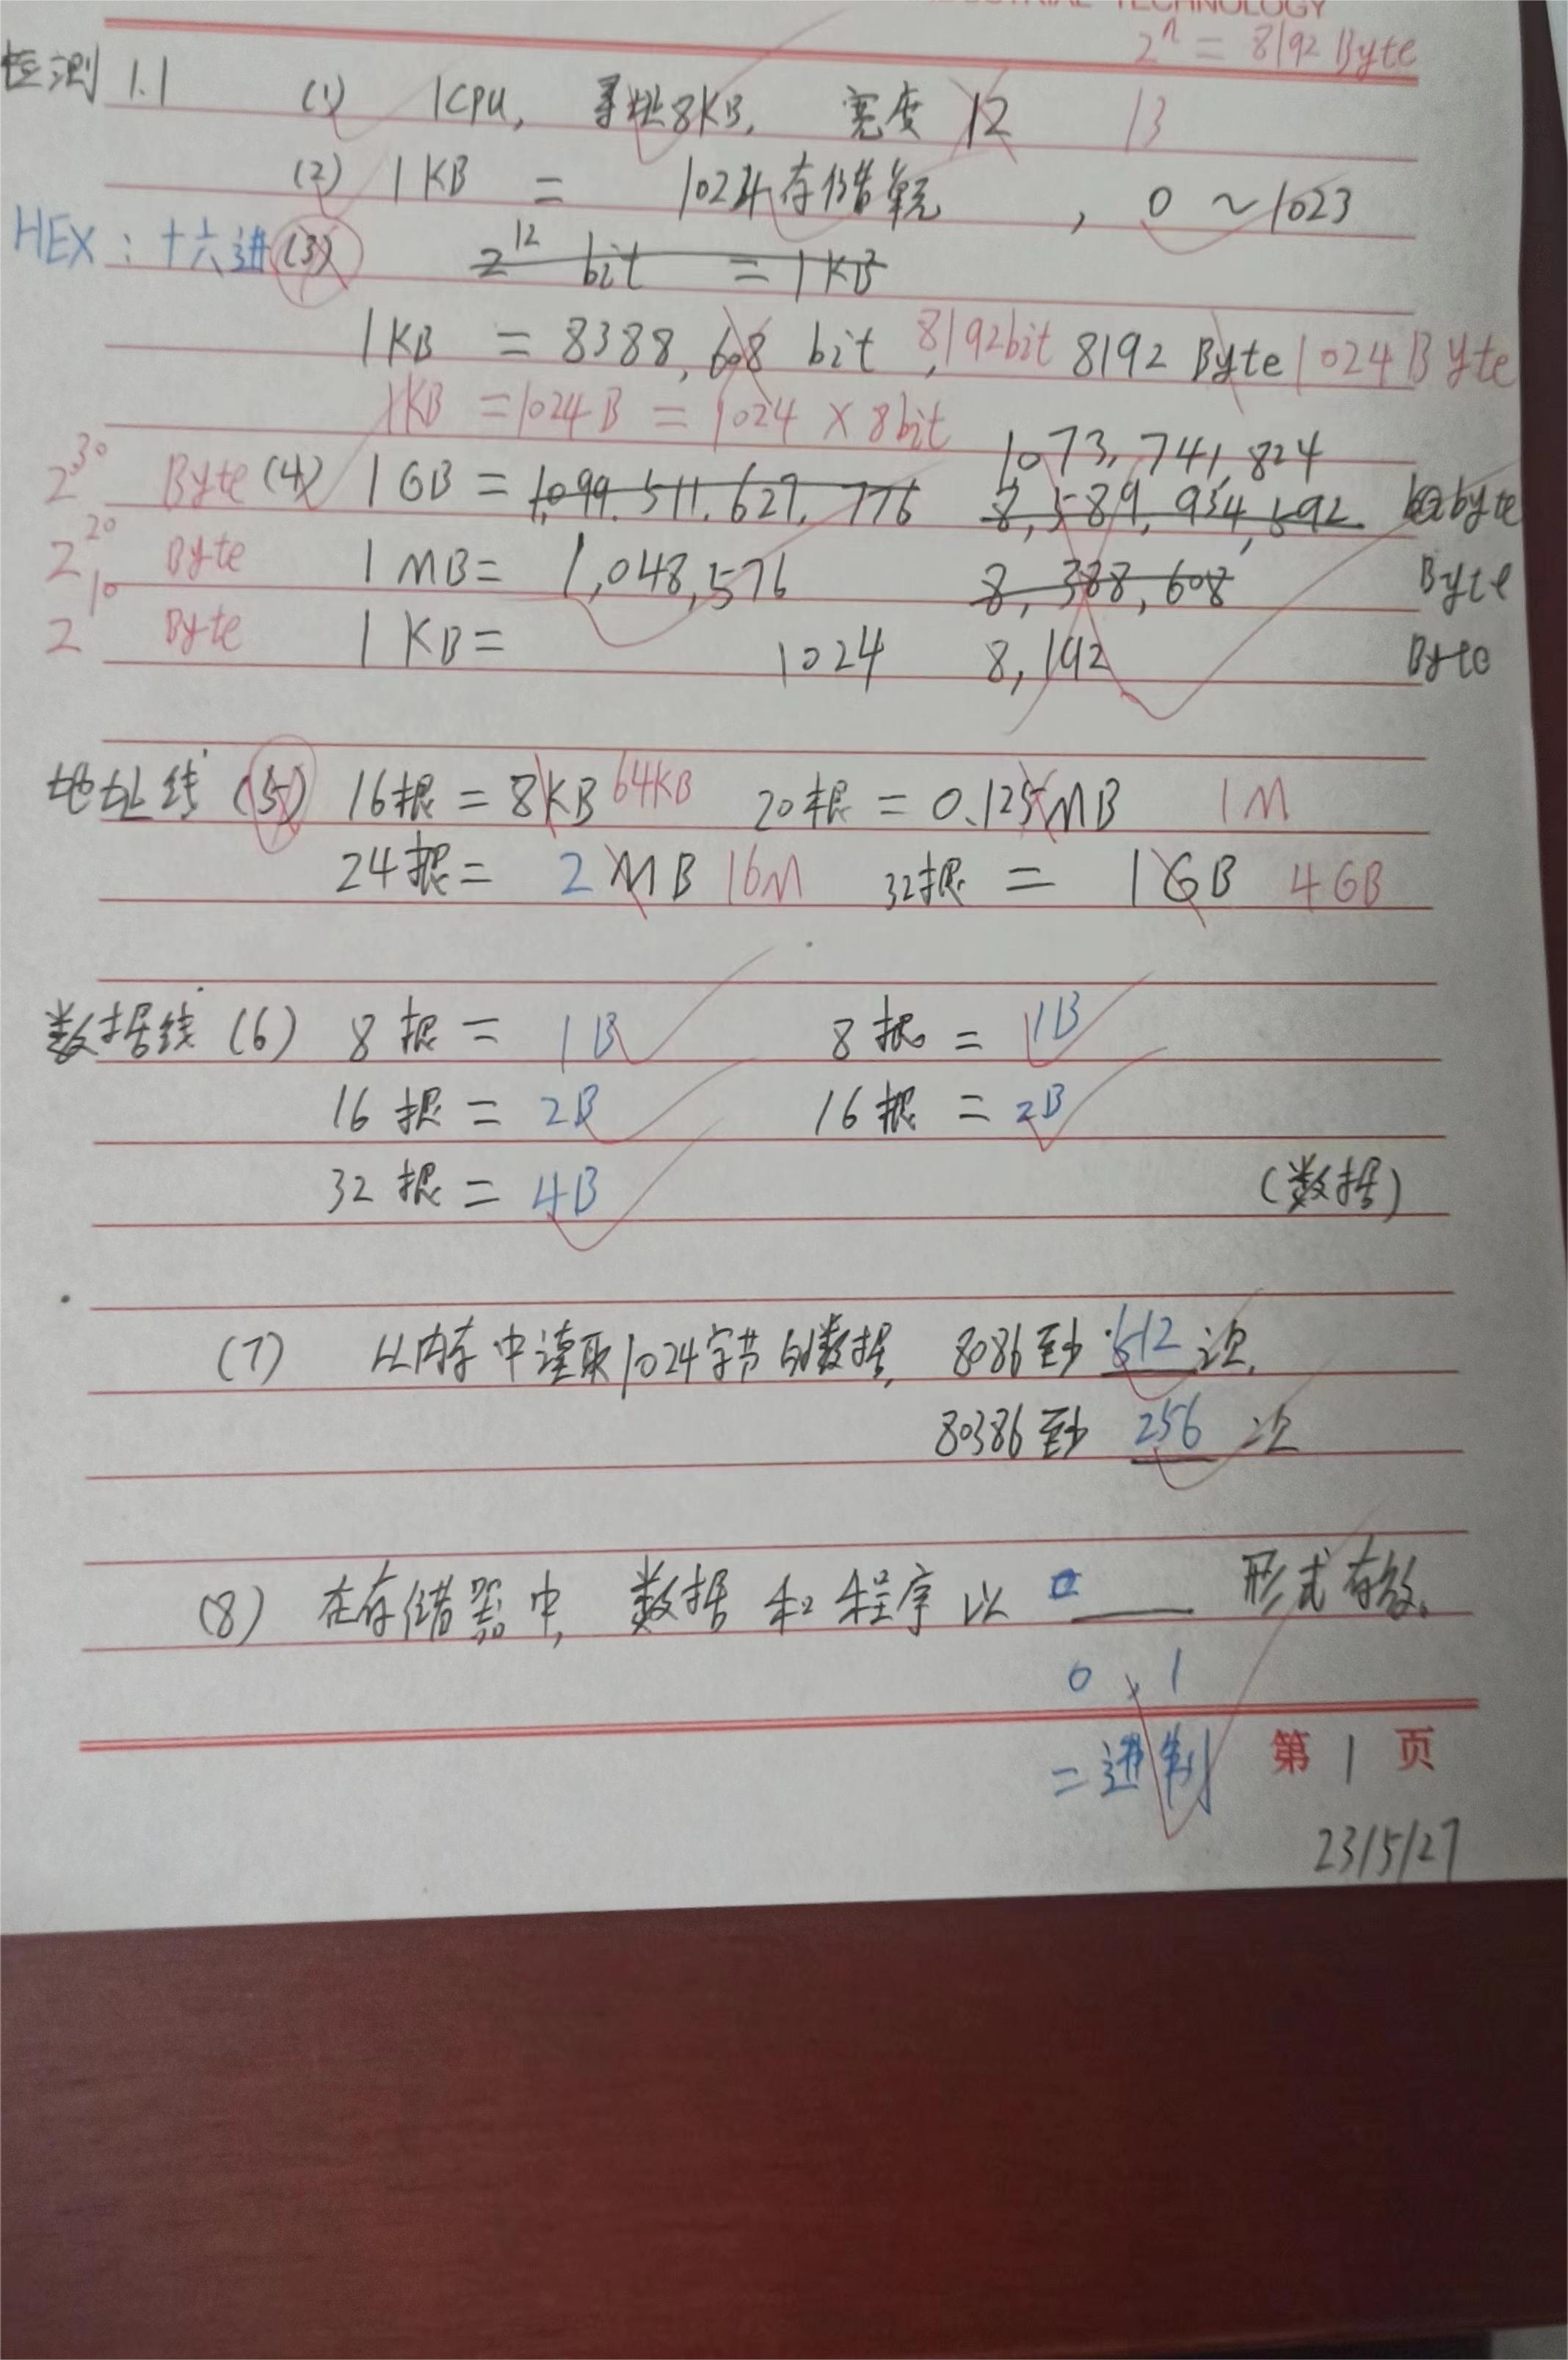 TECHNOLOGY
2ⁿ = 8192 Byte
检测 1.1 (1) 1CPU, 寻址8KB, 宽度 12 13
(2) 1KB = 1024存储单元, 0 ~ 1023
HEX: 十六进 (3) 2¹² bit = 1KB
1KB = 8388,608 bit, 8192bit 8192 Byte 1024 Byte
1KB = 1024B = 1024 × 8bit
1073,741,824
2³⁰ Byte (4) 1GB = 1,099.511.627,776 8,589,934,592 byte
2²⁰ Byte 1MB = 1,048,576 8,388,608 Byte
2¹⁰ Byte 1KB = 1024 8,192 Byte
地址线 (5) 16根 = 8KB 64KB 20根 = 0.125MB 1M
24根 = 2MB 16M 32根 = 1GB 4GB
数据线 (6) 8根 = 1B 8根 = 1B
16根 = 2B 16根 = 2B
32根 = 4B (数据)
(7) 从内存中读取1024字节的数据, 8086至少 512 次,
80386至少 256 次
(8) 在存储器中, 数据和程序以 ____ 形式存放.
0、1
二进制
第 1 页
23/5/27